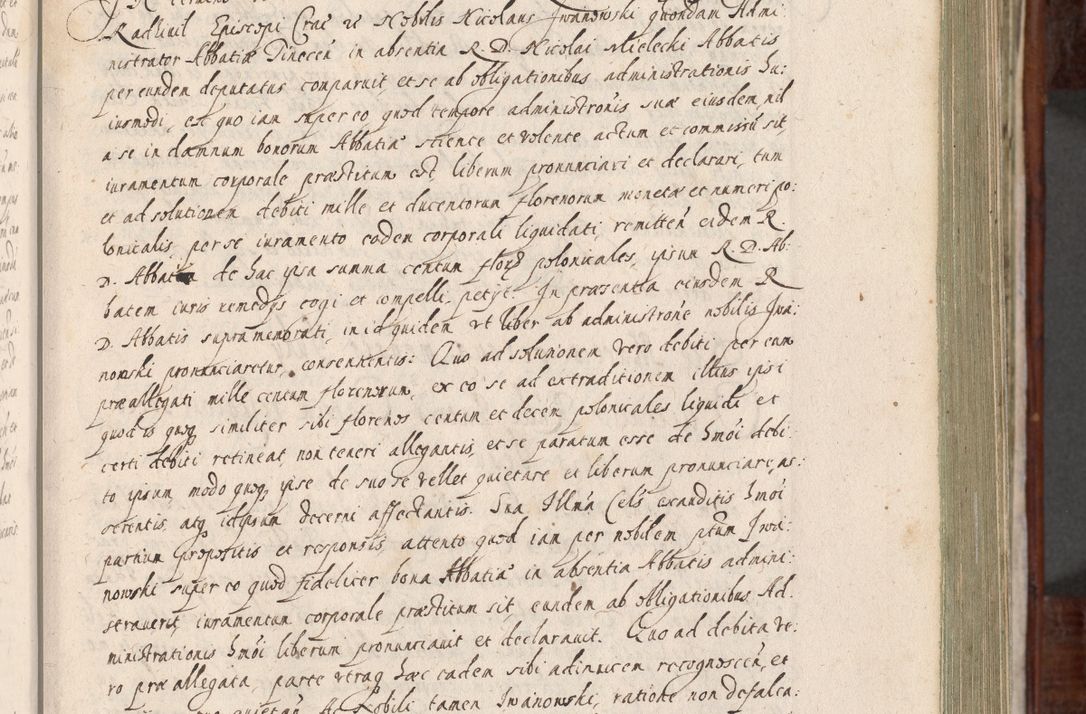 Radiuil Episcopi Crac̃ et Nobilis Nicolaus Jwanowski quondam Admi:
nistrator Abbatiæ Tinecen̄ in absentia R. D. Nicolai Mielecki Abbatis
per eundem deputatus comparuit, et se ab obligationibus administrationis hu:
iusmodi, ex quo iam super eo quod tempore administrõnis suæ eiusdem, nil
a se in damnum bonorum Abbatiæ sciente et volente actum et commissũ sit,
iuramentum corporale præstitum est liberum pronunciari et declarari, tum
et ad solutionem debiti mille et ducentorum florenorum monetæ et numeri po:
lonicalis per se iuramento eodem corporali liquidati, remitten̄ eidem R.
D. Abbati de hac ipsa summa centum floren̄ polonicales, ipsum R. D. Ab:
batem iuris remedys cogi et compelli, petyt. In præsentia eiusdem R
D. Abbatis supramemorati, in id quidem vt liber ab administrõne nobilis Jwa:
nowski pronunciaretur, consentientis: Quo ad solutionem vero debiti per eum
præallegati mille centum florenorum, ex eo se ad extraditionem illius ipsi
quod is quoq3 similiter sibi florenos centum et decem polonicales liquidi et
certi debiti retineat, non teneri allegantis, et se paratum esse de hmõi debi:
to ipsum modo quoq3 ipse de suo se vellet quietare et liberum pronunciare, as:
serentis, atq3 idipsum decerni affectantis. Sua Illm̃a Cels̃ exauditis hmõi
partium propositis et responsis, attento quod iam per nobilem ptum Jwa:
nowski super eo quod fideliter bona Abbatiæ in absentia Abbatis admini:
strauerit, iuramentum corporale præstitum sit, eundem ab obligationibus Ad.
ministrationis hmõi liberum pronunciauit et declarauit. Quo ad debita ve:
ro præallegata, parte vtraq3 hæc eadem sibi adinuicem recognoscen̄, et
quietan̄ Nobili tamen Jwanowski, ratione non defalca: